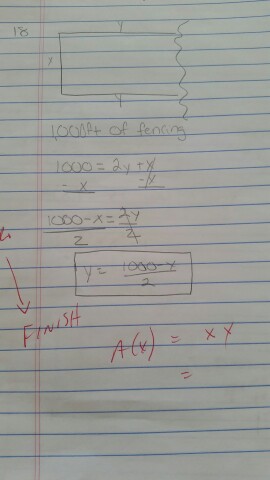 18
y
y
y
1000ft of fencing
1000 = 2y + x
- x -x
1000-x = 2y
2 2
y = 1000-x
2
FINISH
A(x) = x y
=